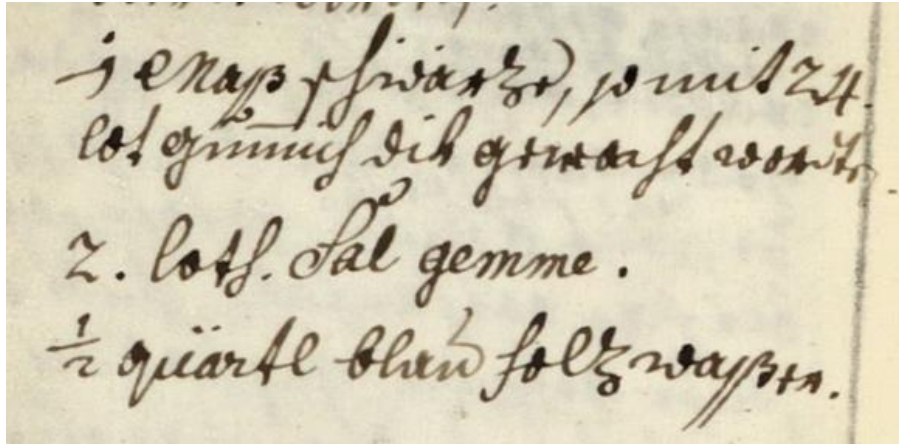 1 Maß schwartze, so mit 24.
lot gummich dik gemacht worde
2. loth. Sal gemme.
1/2 quärtl blau holtz waßer.